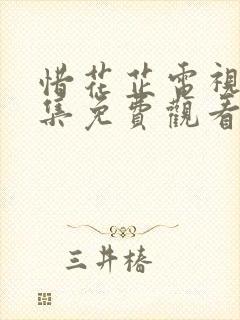 惜花芷電視
集免費觀看
三井椿